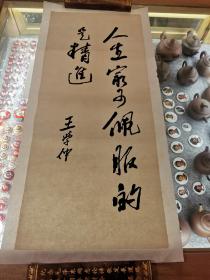 人生最可佩服的
是精進
王学仲